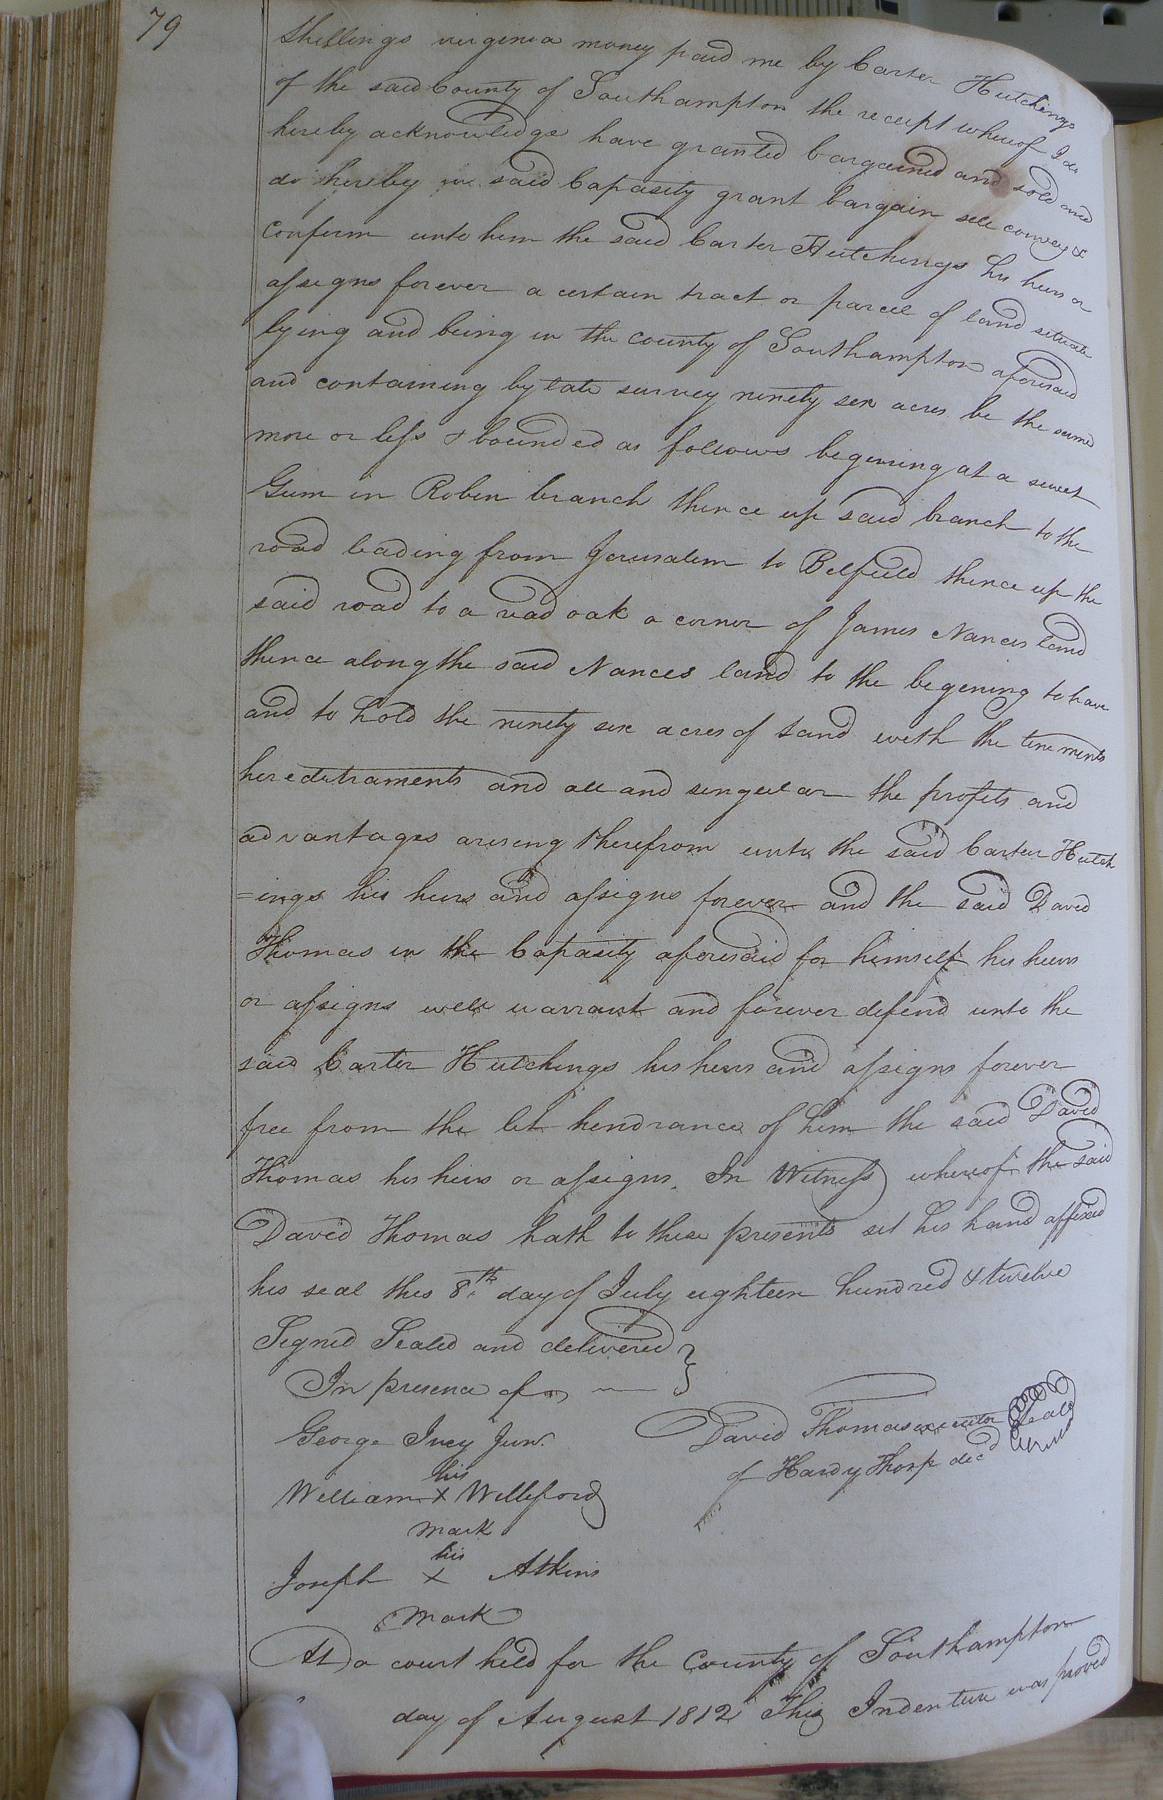 79
shillings virginia money paid me by Carter Hutchings
of the said County of Southampton the receipt whereof I do
hereby acknowledge have granted bargained and sold and
do hereby in said Capasity grant bargain sell convey &
confirm unto him the said Carter Hutchings his heirs or
assigns forever a certain tract or parcel of land situate
lying and being in the county of Southampton aforesaid
and containing by late survey ninety six acres be the same
more or less & bounded as follows begening at a sweet
Gum in Robin branch thence up said branch to the
road leading from Jerusalem to Belfield thence up the
said road to a read oak a corner of James Nances land
thence along the said Nances land to the begening to have
and to hold the ninety six acres of land with the tenements
heredetraments and all and singular the profits and
advantages arising therefrom unto the said Carter Hutch
=ings his heirs and assigns forever and the said David
Thomas in the Capasity aforesaid for himself his heirs
or assigns will warrant and forever defend unto the
said Carter Hutchings his heirs and assigns forever
free from the let hendrance of him the said David
Thomas his heirs or assigns. In Witness whereof the said
David Thomas hath to these presents set his hand affixed
his seal this 8th day of July eighteen hundred & twelve
Signed Sealed and delivered }
In presence of
George Ivey Junr.
David Thomas executor Seal
of Hardy Thorp decd
his
William X Williford
mark
his
Joseph X Atkins
mark
At a court held for the County of Southampton
day of August 1812 This Indenture was proved